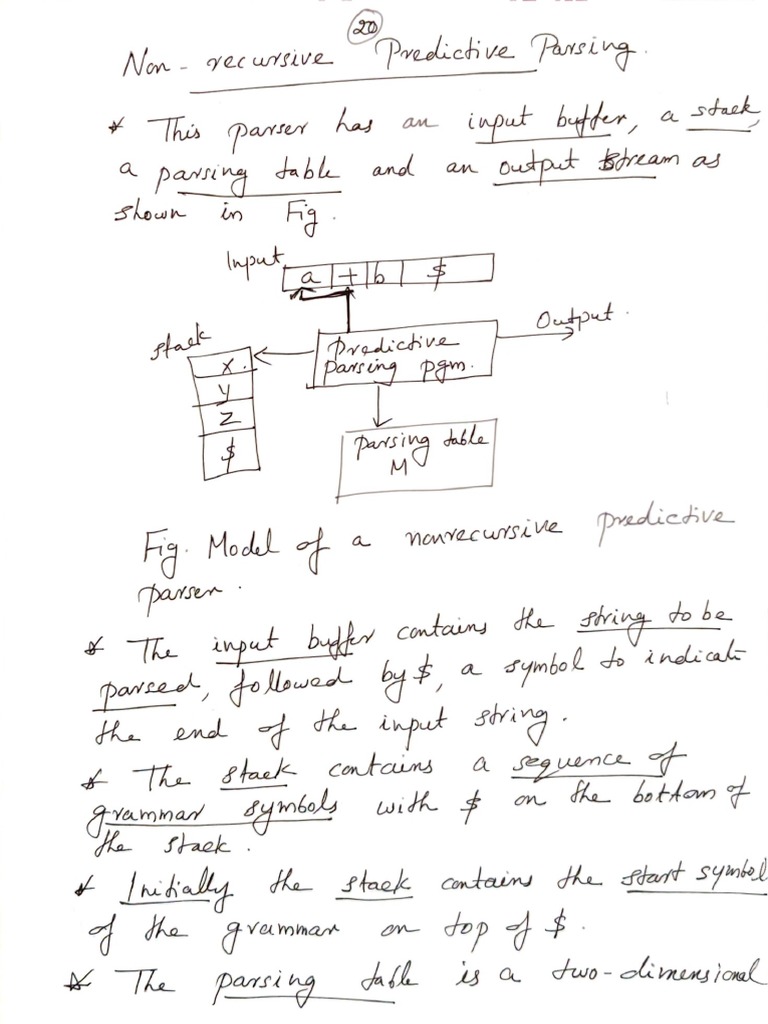 20
Non-recursive Predictive Parsing.
* This parser has an input buffer, a stack,
a parsing table and an output stream as
shown in Fig.
Input
a + b $
Output.
Stack
Predictive
parsing pgm.
X.
Y
Z
$
parsing table
M
Fig. Model of a nonrecursive predictive
parser.
* The input buffer contains the string to be
parsed, followed by $, a symbol to indicate
the end of the input string.
* The stack contains a sequence of
grammar symbols with $ on the bottom of
the stack.
* Initially the stack contains the start symbol
of the grammar on top of $.
* The parsing table is a two-dimensional